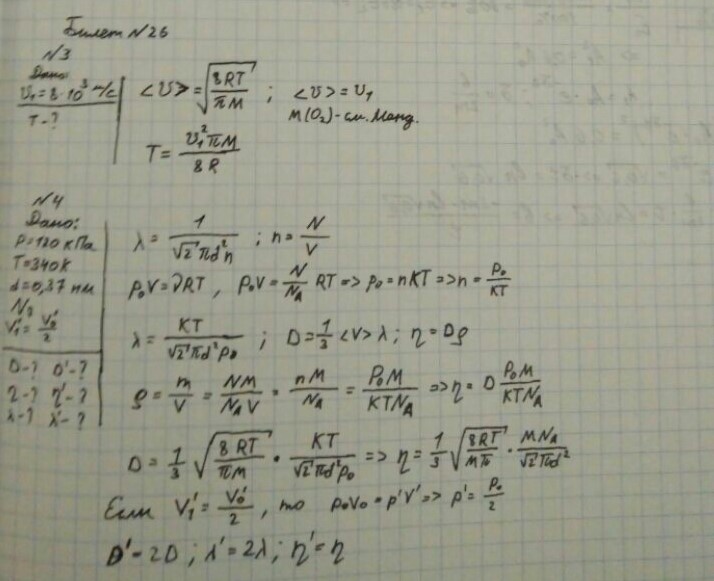 Билет №26
№3
Дано:
υ₁ = 8·10³ м/с
T - ?
<υ> = √(8RT/πM) ; <υ> = υ₁
M(O₂) - см. Менд.
T = υ₁²πM/8R
№4
Дано:
P = 120 кПа
T = 340 K
d = 0,37 нм
N₂
V₁' = V₀'/2
D - ? D' - ?
η - ? η' - ?
λ - ? λ' - ?
λ = 1/(√2 πd²n) ; n = N/V
p₀V = νRT, p₀V = N/Nₐ RT => p₀ = nKT => n = p₀/KT
λ = KT/(√2 πd²p₀) ; D = 1/3 <v> λ ; η = Dρ
ρ = m/V = NM/(NₐV) = nM/Nₐ = P₀M/(KTNₐ) => η = D P₀M/(KTNₐ)
D = 1/3 √(8RT/πM) · KT/(√2 πd²p₀) => η = 1/3 √(8RT/Mπ) · MNₐ/(√2 πd²)
Если V₁' = V₀'/2, то p₀V₀ = p'V' => p' = p₀/2
D' = 2D ; λ' = 2λ ; η' = η